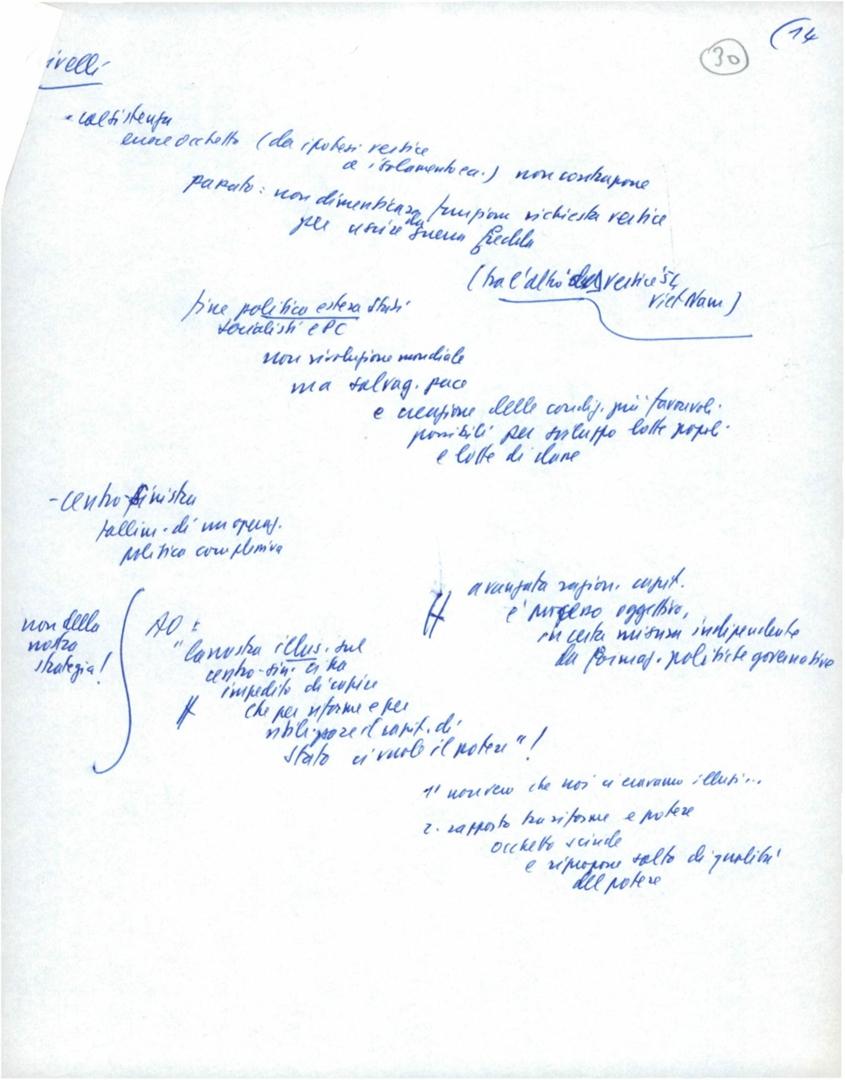 (14
30
ivelli
- coesistenza
errore Occhetto (da ipotesi vertice
a isolamento ca.) non contrapone
passato: non dimenticare funzioni richiesta vertice
per uscire da guerra fredda
(tra l'altro vertice '54
Viet Nam)
fine politica estera Stati
socialisti e PC
non rivoluzione mondiale
ma salvag. pace
e creazione delle condiz. più favorevoli
possibili per sviluppo lotte popoli
e lotte di classe
- centro-sinistra
fallim. di un operaz.
politica complessiva
non della
nostra
strategia!
AO:
"la nostra illus. sul
centro-sin. ci ha
impedito di capire
che per riforme e per
utilizzare il capit. di
Stato ci vuole il potere"!
avanzata razion. capit.
è processo oggettivo,
in certa misura indipendente
da formaz. politiche governative
1° non vero che noi ci eravamo illusi...
2. rapporto tra riforme e potere
Occhetto scinde
e ripropone salto di qualità
del potere